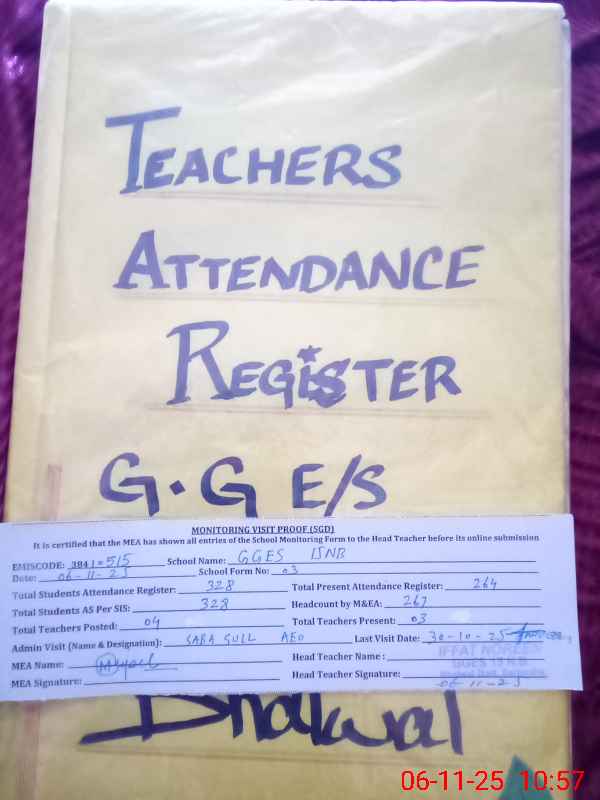 TEACHERS
ATTENDANCE
REGISTER
G.G E/S
MONITORING VISIT PROOF (SGD)
It is certified that the MEA has shown all entries of the School Monitoring Form to the Head Teacher before its online submission
EMISCODE: 3841 = 515 School Name: GGES 15NB
Date: 06-11-25 School Form No: 03
Total Students Attendance Register: 328 Total Present Attendance Register: 264
Total Students AS Per SIS: 328 Headcount by M&EA: 263
Total Teachers Posted: 04 Total Teachers Present: 03
Admin Visit (Name & Designation): SABA GULL AEO Last Visit Date: 30-10-25
MEA Name: Head Teacher Name:
IFFAT NOREEN
GGES 15 N.B.
MEA Signature: Head Teacher Signature:
06-11-25
Bhalwal
06-11-25 10:57